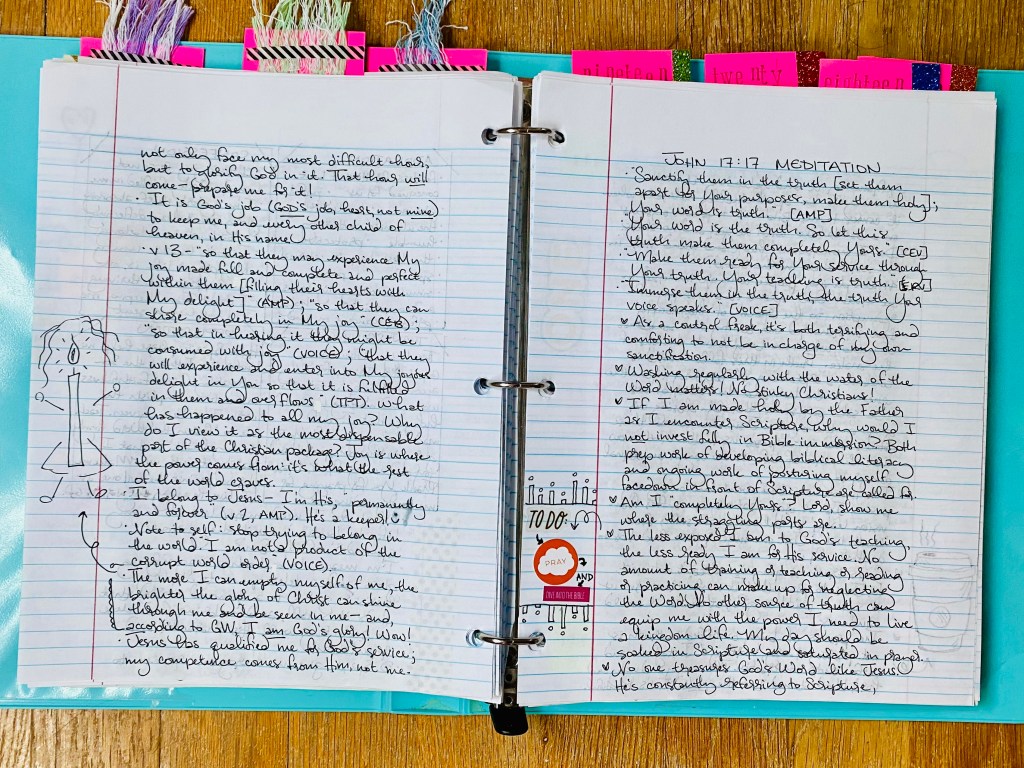 nineteen
twenty
eighteen
not only face my most difficult hour,
but to glorify God in it. That hour will
come - prepare me for it!
· It is God's job (GOD'S job, heart, not mine)
to keep me, and every other child of
heaven, in His name
· v 13 - "so that they may experience My
joy made full and complete and perfect
within them [filling their hearts with
My delight]" (AMP); "so that they can
share completely in My joy" (CEB);
"so that in hearing it they might be
consumed with joy" (VOICE); "that they
will experience and enter into My joyous
delight in You so that it is fulfilled
in them and overflows" (TPT). What
has happened to all my joy? Why
do I view it as the most dispensable
part of the Christian package? Joy is where
the power comes from: it's what the rest
of the world craves.
· I belong to Jesus - I'm His, "permanently
and forever" (v. 2, AMP). He's a keeper!
· Note to self: stop trying to belong in
the world. I am not a product of the
corrupt world order (VOICE).
· The more I can empty myself of me, the
brighter the glory of Christ can shine
through me and be seen in me - and,
according to GW, I am God's glory! Wow!
· Jesus has qualified me for God's service;
my competence comes from Him, not me.
JOHN 17:17 MEDITATION
· "Sanctify them in the truth [set them
apart for Your purposes, make them holy];
Your word is truth." [AMP]
· "Your word is the truth. So let this
truth make them completely Yours." [CEV]
· "Make them ready for Your service through
Your truth. Your teaching is truth." [ERV]
· "Immerse them in the truth, the truth Your
voice speaks. [VOICE]
♥ As a control freak, it's both terrifying and
comforting to not be in charge of my own
sanctification.
♥ Washing regularly with the water of the
Word matters! No stinky Christians!
♥ If I am made holy by the Father
as I encounter Scripture, why would I
not invest fully in Bible immersion? Both
prep work of developing biblical literacy
and ongoing work of posturing myself
facedown in front of Scripture are called for.
♥ Am I "completely Yours"? Lord, show me
where the straggling parts are.
♥ The less exposed I am to God's teaching,
the less ready I am for His service. No
amount of training or teaching or reading
or practicing can make up for neglecting
the Word. No other source of truth can
equip me with the power I need to live
a kingdom life. My day should be
soaked in Scripture and saturated in prayer.
♥ No one treasures God's Word like Jesus.
He's constantly referring to Scripture,
TO DO:
PRAY
AND
DIVE INTO THE BIBLE